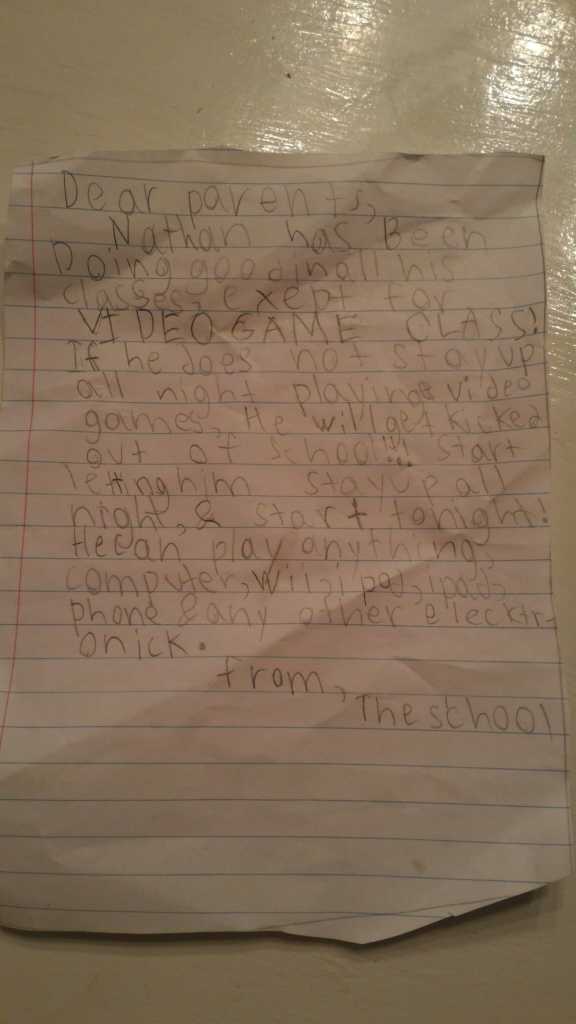 Dear parents,
Nathan has Been
Doing good in all his
classes, exept for
VIDEO GAME CLASS!
If he does not stay up
all night playing video
games, He will get kicked
out of school!!! Start
letting him stay up all
night, & start tonight!
He can play anything,
computer, Wii, ipod, ipad,
phone & any other elecktr-
onick.
from,
The school